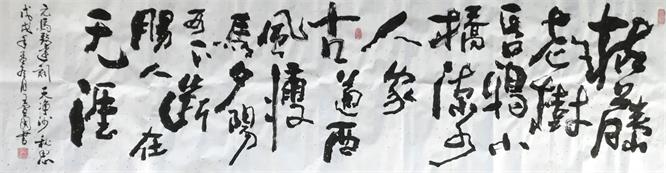 枯藤
老樹
昏鴉小
橋流水
人家
古道西
風瘦
馬夕陽
西下斷
腸人在
天涯
元馬致遠詞 天淨沙秋思
戊戌年 月 書